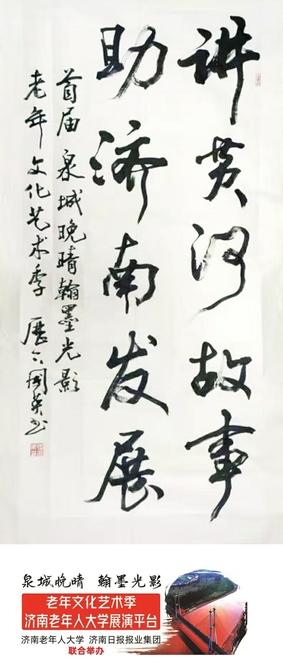 讲黄河故事
助济南发展
首届泉城晚晴翰墨光影
老年文化艺术季 历下
泉城晚晴 翰墨光影
老年文化艺术季
济南老年人大学展演平台
济南老年人大学 济南日报报业集团
联合举办